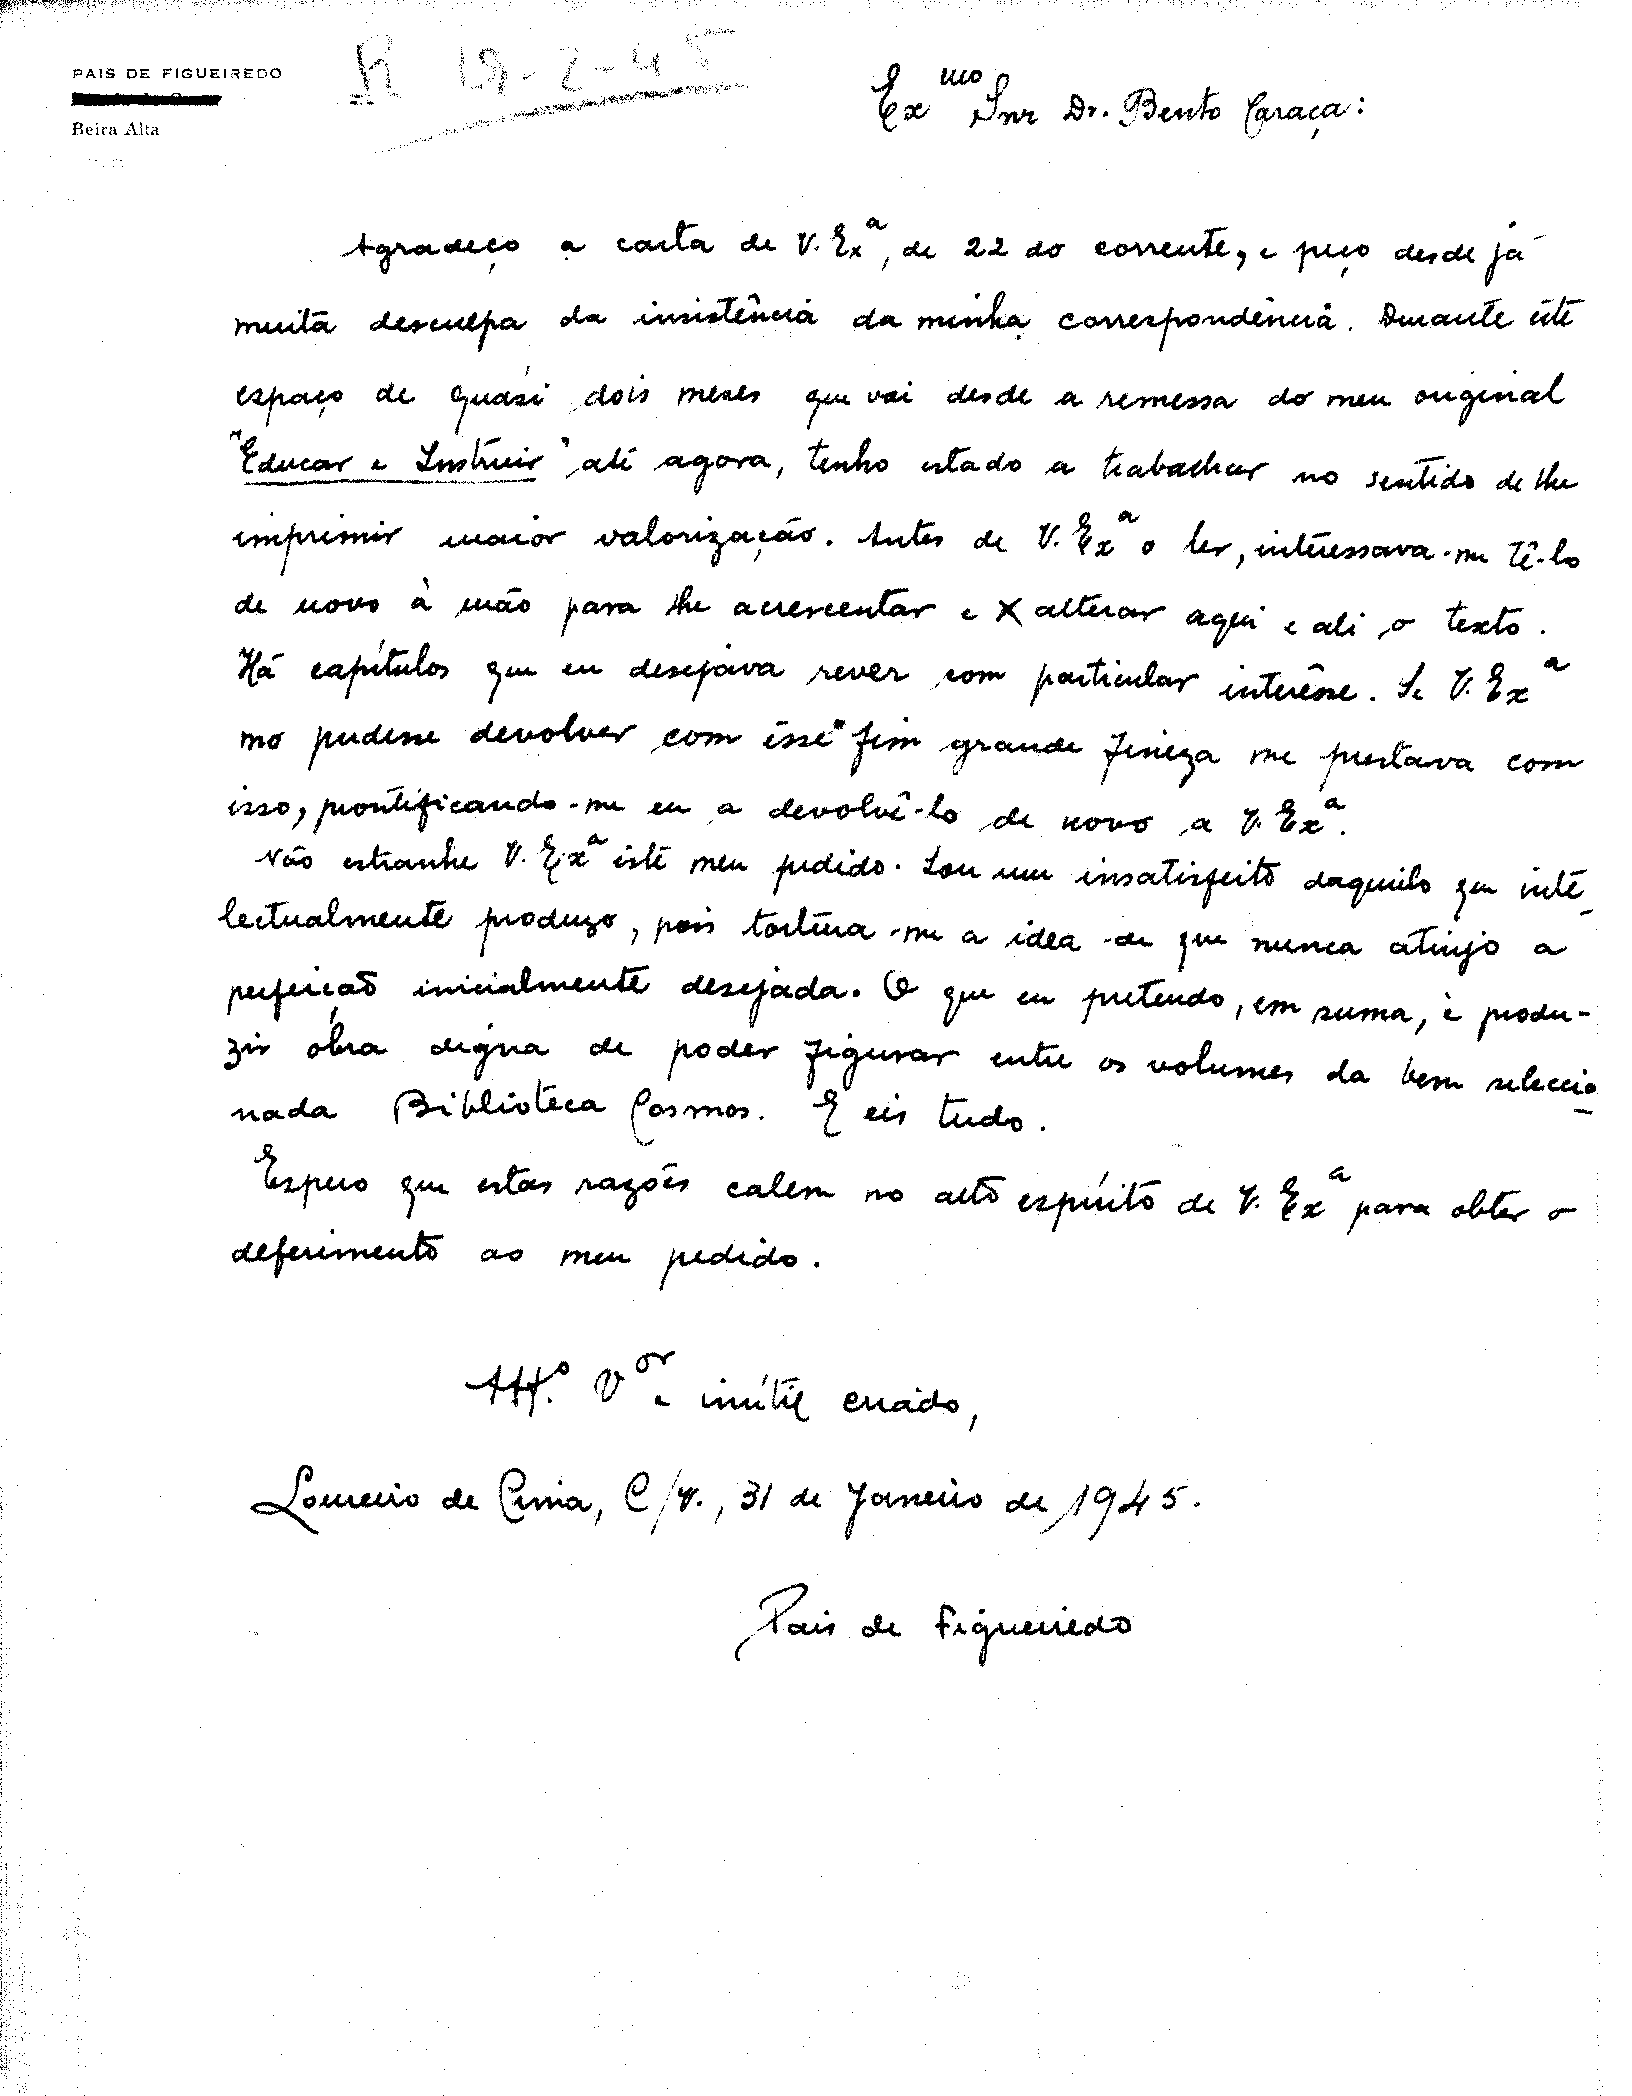 PAIS DE FIGUEIREDO
Beira Alta
R 19-2-45
Exmo Snr Dr. Bento Caraça:
Agradeço a carta de V. Exª, de 22 do corrente, e peço desde já
muita desculpa da insistência da minha correspondência. Durante êste
espaço de quási dois meses que vai desde a remessa do meu original
"Educar e Instruir" até agora, tenho estado a trabalhar no sentido de lhe
imprimir maior valorização. Antes de V. Exª o ler, interessava-me tê-lo
de novo à mão para lhe acrescentar e X alterar aqui e ali o texto.
Há capítulos que eu desejava rever com particular interêsse. Se V. Exª
mo pudesse devolver com êsse fim grande fineza me prestava com
isso, prontificando-me eu a devolvê-lo de novo a V. Exª.
Não estranhe V. Exª êste meu pedido. Sou um insatisfeito daquilo que inte-
lectualmente produzo, pois tortura-me a idea de que nunca atinjo a
perfeição inicialmente desejada. O que eu pretendo, em suma, é produ-
zir obra digna de poder figurar entre os volumes da bem seleccio-
nada Biblioteca Cosmos. E eis tudo.
Espero que estas razões calem no alto espírito de V. Exª para obter o
deferimento ao meu pedido.
Att.º Vor e inútil criado,
Loureiro de Cima, C/V., 31 de Janeiro de 1945.
Pais de Figueiredo